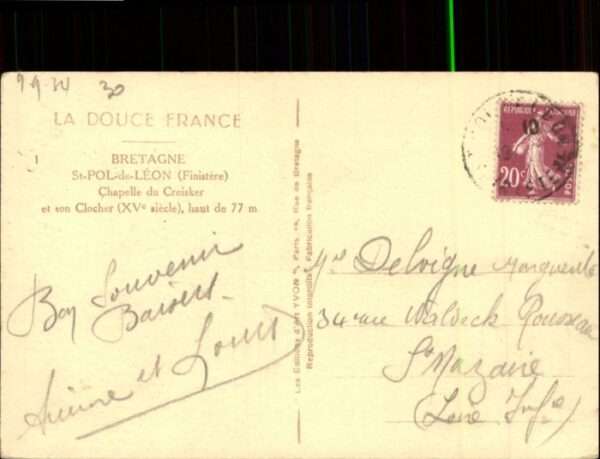 9 9 34 30
LA DOUCE FRANCE
1
BRETAGNE
St-POL-de-LÉON (Finistère)
Chapelle du Creisker
et son Clocher (XVe siècle), haut de 77 m
Bon Souvenir
Baisers
et Louis
Les Editions d'Art YVON, Paris, Rue de Bretagne
Reproduction interdite. Fabrication française
REPUBLIQUE FRANCAISE
10
20c
POSTES
Delvigne Marguerite
34 rue Waldeck Rousseau
St Nazaire
Loire Infre